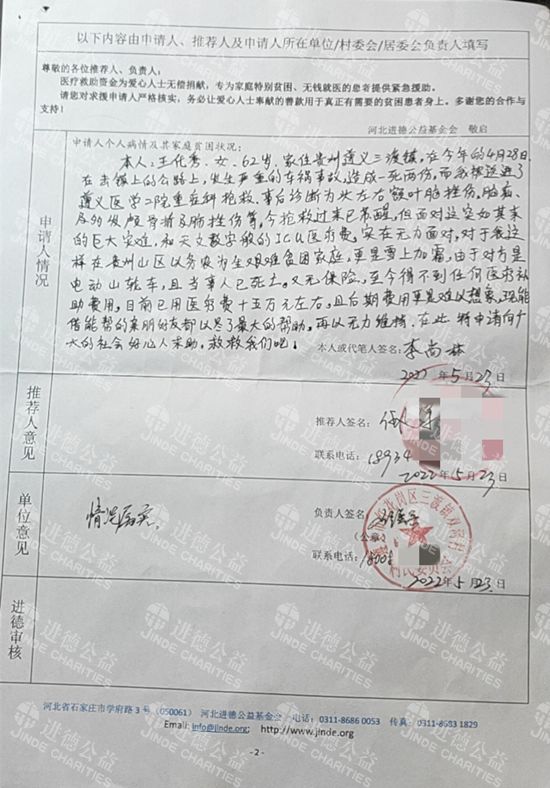 以下内容由申请人、推荐人及申请人所在单位/村委会/居委会负责人填写
尊敬的各位推荐人、负责人：
医疗救助资金为爱心人士无偿捐献，专为家庭特别贫困、无钱就医的患者提供紧急援助。
请您对求援申请人严格核实，务必让爱心人士奉献的善款用于真正有需要的贫困患者身上。多谢您的合作与
支持！
河北进德公益基金会 敬启
申请人情况
申请人个人病情及其家庭贫困状况：
本人：王化秀，女，62岁，家住贵州遵义三渡镇，在今年的4月28日，
在去镇上的公路上，发生严重的车祸事故，造成一死两伤，而我被送进了
遵义医学二院重症科抢救，事后诊断为次左右额叶脑挫伤，脑疝，
及多发颅骨骨折及肺挫伤等，今抢救过来已苏醒，但面对这突如其来
的巨大灾难，和天文数字般的ICU医疗费，实在无力面对，对于我这
样在贵州山区以务农为生艰难贫困家庭，更是雪上加霜，由于对方是
电动三轮车，且当事人已死亡。又无保险，至今得不到任何医疗补
助费用，目前已用医疗费十五万元左右，且后期费用更是难以想象，现能
借能帮的亲朋好友都以尽了最大的帮助。再以无力维持，在此特申请向广
大的社会好心人求助，救救我们吧！
本人或代笔人签名：李尚林
2022年5月23日
推荐人意见
推荐人签名：
联系电话：18934
2022年5月23
单位意见
情况属实。
负责人签名
（公章）
联系电话：
村民委员会
2022年5月23日
进德审核
河北省石家庄市学府路3号（050061） 河北进德公益基金会 电话：0311-8686 0053 传真：0311-8683 1829
Email: info@jinde.org; http://www.jinde.org
-2-
进德公益
JINDE CHARITIES